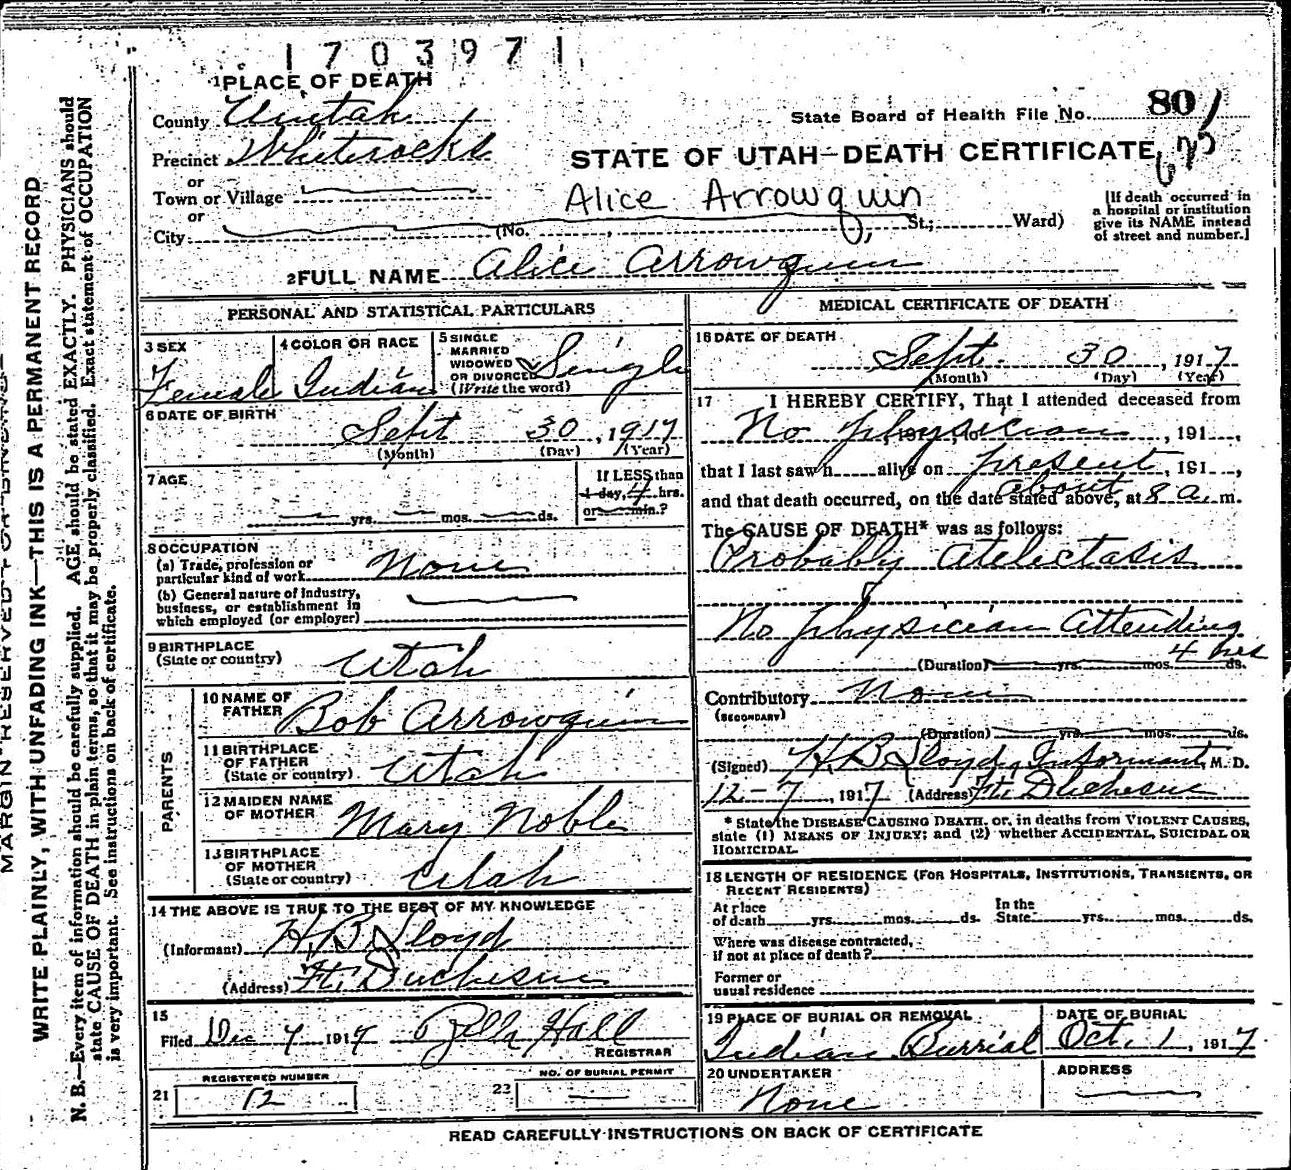 1703971
1 PLACE OF DEATH
County Uintah
State Board of Health File No. 80
Precinct Whiterocks
STATE OF UTAH—DEATH CERTIFICATE
or
Town or Village
Alice Arrowquin
[If death occurred in
a hospital or institution
give its NAME instead
of street and number.]
or
City (No. , St.; Ward)
2 FULL NAME Alice Arrowquin
PERSONAL AND STATISTICAL PARTICULARS
3 SEX
Female
4 COLOR OR RACE
Indian
5 SINGLE
MARRIED
WIDOWED
OR DIVORCED
(Write the word)
Single
6 DATE OF BIRTH
Sept 30, 1917
(Month) (Day) (Year)
7 AGE
If LESS than
1 day, 4 hrs.
or min.?
yrs. mos. ds.
8 OCCUPATION
(a) Trade, profession or
particular kind of work None
(b) General nature of Industry,
business, or establishment in
which employed (or employer)
9 BIRTHPLACE
(State or country) Utah
PARENTS
10 NAME OF
FATHER Bob Arrowquin
11 BIRTHPLACE
OF FATHER
(State or country) Utah
12 MAIDEN NAME
OF MOTHER Mary Noble
13 BIRTHPLACE
OF MOTHER
(State or country) Utah
14 THE ABOVE IS TRUE TO THE BEST OF MY KNOWLEDGE
(Informant) H B Lloyd
(Address) Ft. Duchesne
15
Filed Dec 7 1917 Zella Hall
REGISTRAR
21 REGISTERED NUMBER
12
22 NO. OF BURIAL PERMIT
MEDICAL CERTIFICATE OF DEATH
16 DATE OF DEATH
Sept. 30, 1917
(Month) (Day) (Year)
17 I HEREBY CERTIFY, That I attended deceased from
No physician , 191 ,
that I last saw h alive on present, 191 ,
and that death occurred, on the date stated above, at about 8 a. m.
The CAUSE OF DEATH* was as follows:
Probably atelectasis
No physician attending
(Duration) yrs. mos. 4 hrs ds.
Contributory None
(SECONDARY)
(Duration) yrs. mos. ds.
(Signed) H. B Lloyd, Informant, M. D.
12-7, 1917 (Address) Ft. Duchesne
* State the DISEASE CAUSING DEATH, or, in deaths from VIOLENT CAUSES,
state (1) MEANS OF INJURY; and (2) whether ACCIDENTAL, SUICIDAL OR
HOMICIDAL.
18 LENGTH OF RESIDENCE (FOR HOSPITALS, INSTITUTIONS, TRANSIENTS, OR
RECENT RESIDENTS)
At place
of death yrs. mos. ds.
In the
State yrs. mos. ds.
Where was disease contracted,
if not at place of death?
Former or
usual residence
19 PLACE OF BURIAL OR REMOVAL
Indian Burrial
DATE OF BURIAL
Oct. 1, 1917
20 UNDERTAKER
None
ADDRESS
READ CAREFULLY INSTRUCTIONS ON BACK OF CERTIFICATE
WRITE PLAINLY, WITH UNFADING INK—THIS IS A PERMANENT RECORD
N. B.—Every item of information should be carefully supplied. AGE should be stated EXACTLY. PHYSICIANS should
state CAUSE OF DEATH in plain terms, so that it may be properly classified. Exact statement of OCCUPATION
is very important. See instructions on back of certificate.